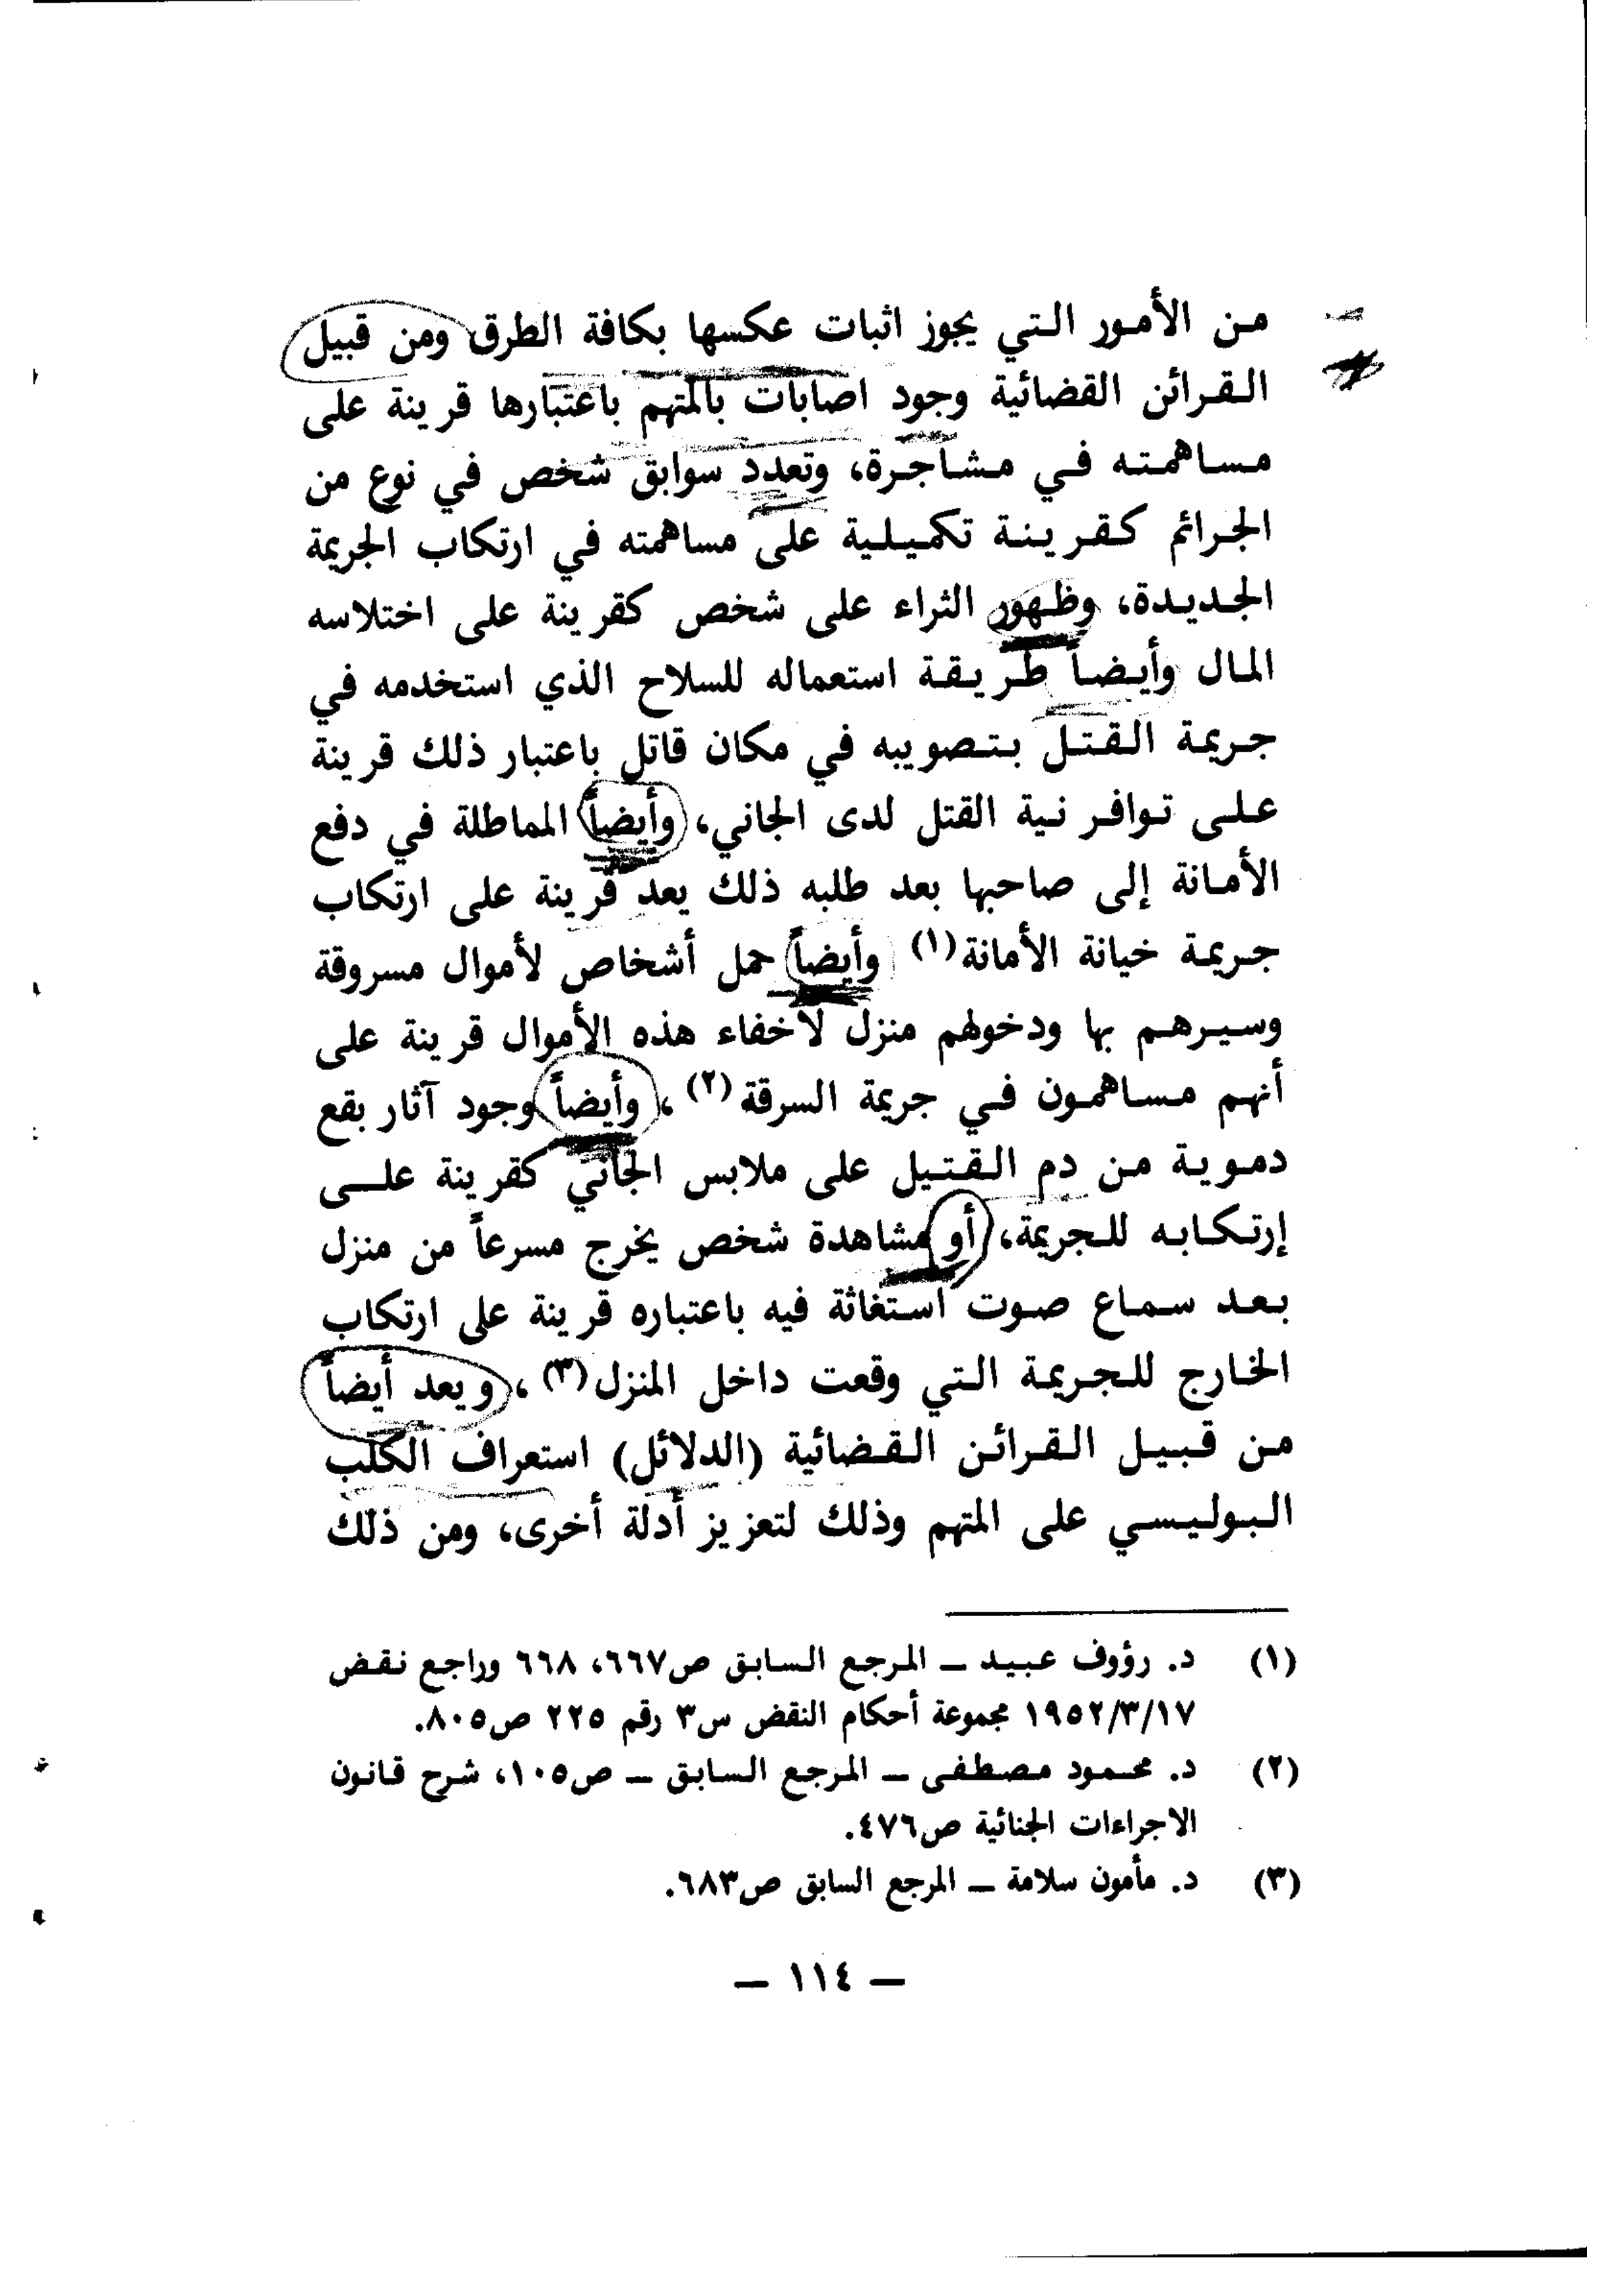 من الأمور التي يجوز اثبات عكسها بكافة الطرق ومن قبيل
القرائن القضائية وجود اصابات بالمتهم باعتبارها قرينة على
مساهمته في مشاجرة، وتعدد سوابق شخص في نوع من
الجرائم كقرينة تكميلية على مساهمته في ارتكاب الجريمة
الجديدة، وظهور الثراء على شخص كقرينة على اختلاسه
المال وأيضاً طريقة استعماله للسلاح الذي استخدمه في
جريمة القتل بتصويبه في مكان قاتل باعتبار ذلك قرينة
على توافر نية القتل لدى الجاني، وأيضاً المماطلة في دفع
الأمانة إلى صاحبها بعد طلبه ذلك يعد قرينة على ارتكاب
جريمة خيانة الأمانة (١) وأيضاً حمل أشخاص لأموال مسروقة
وسيرهم بها ودخولهم منزل لاخفاء هذه الأموال قرينة على
أنهم مساهمون في جريمة السرقة (٢)، وأيضاً وجود آثار بقع
دموية من دم القتيل على ملابس الجاني كقرينة على
إرتكابه للجريمة، أو مشاهدة شخص يخرج مسرعاً من منزل
بعد سماع صوت استغاثة فيه باعتباره قرينة على ارتكاب
الخارج للجريمة التي وقعت داخل المنزل (٣)، ويعد أيضاً
من قبيل القرائن القضائية (الدلائل) استعراف الكلب
البوليسي على المتهم وذلك لتعزيز أدلة أخرى، ومن ذلك
(١) د. رؤوف عبيد ــ المرجع السابق ص٦٦٧، ٦٦٨ وراجع نقض
١٩٥٢/٣/١٧ مجموعة أحكام النقض س٣ رقم ٢٢٥ ص٨٠٥.
(٢) د. محمود مصطفى ــ المرجع السابق ــ ص١٠٥، شرح قانون
الاجراءات الجنائية ص٤٧٦.
(٣) د. مأمون سلامة ــ المرجع السابق ص٦٨٣.
— ١١٤ —